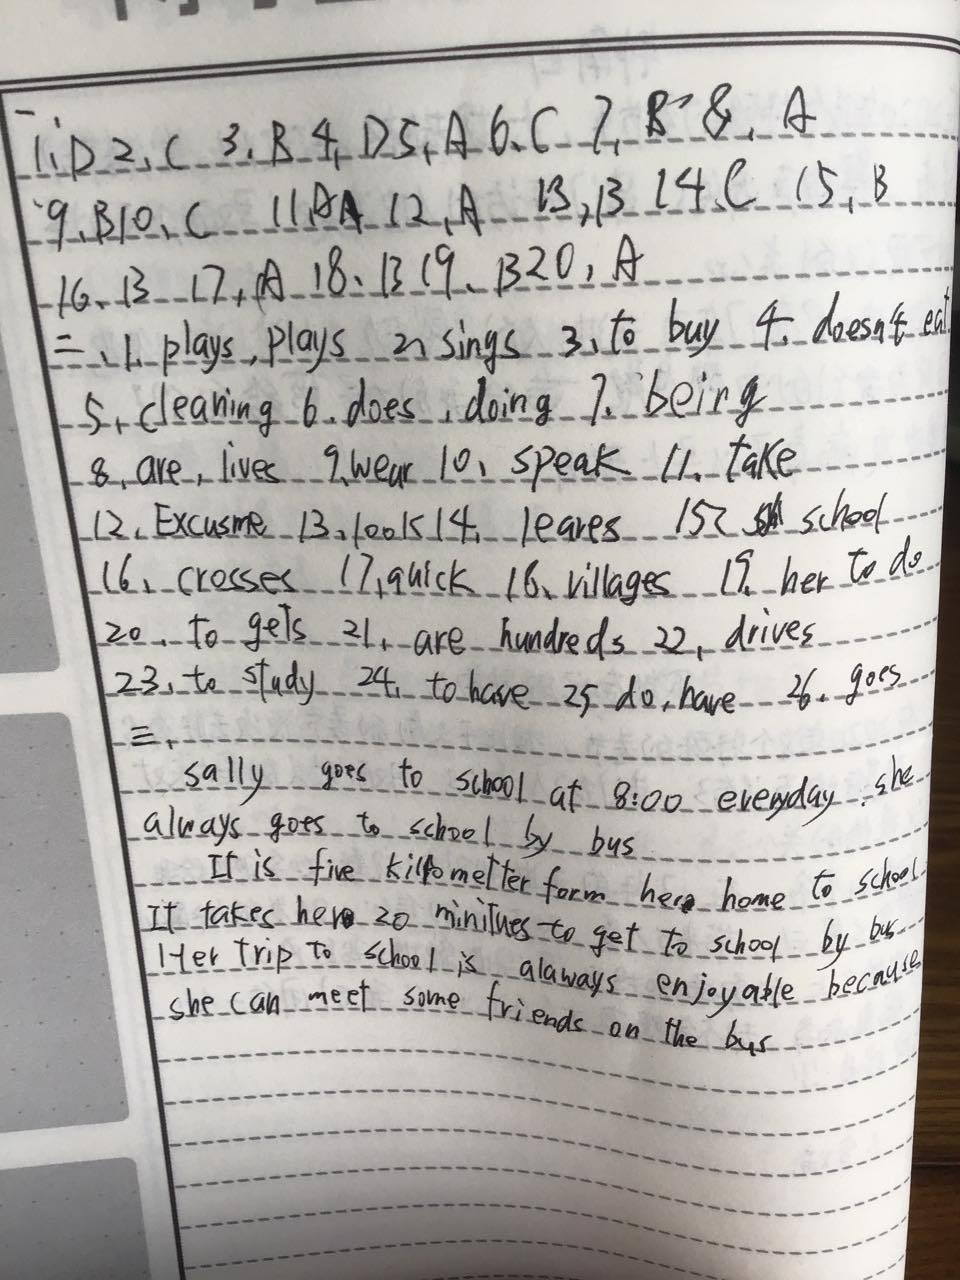 一
1、D 2、C 3、B 4、D 5、A 6、C 7、B 8、A
9、B 10、C 11、A 12、A 13、B 14、C 15、B
16、B 17、A 18、B 19、B 20、A
二、1、plays, plays 2、sings 3、to buy 4、doesn't eat
5、cleaning 6、does, doing 7、being
8、are, lives 9、wear 10、speak 11、take
12、Excusme 13、looks 14、leares 15、school
16、crosses 17、quick 18、villages 19、her to do
20、to gets 21、are hundreds 22、drives
23、to study 24、to have 25、do, have 26、goes
三、
sally goes to school at 8:00 everyday. she
always goes to school by bus
It is five kilometter form here home to school.
It takes here 20 minitues to get to school by bus.
Her trip to school is alaways enjoyable because
she can meet some friends on the bus